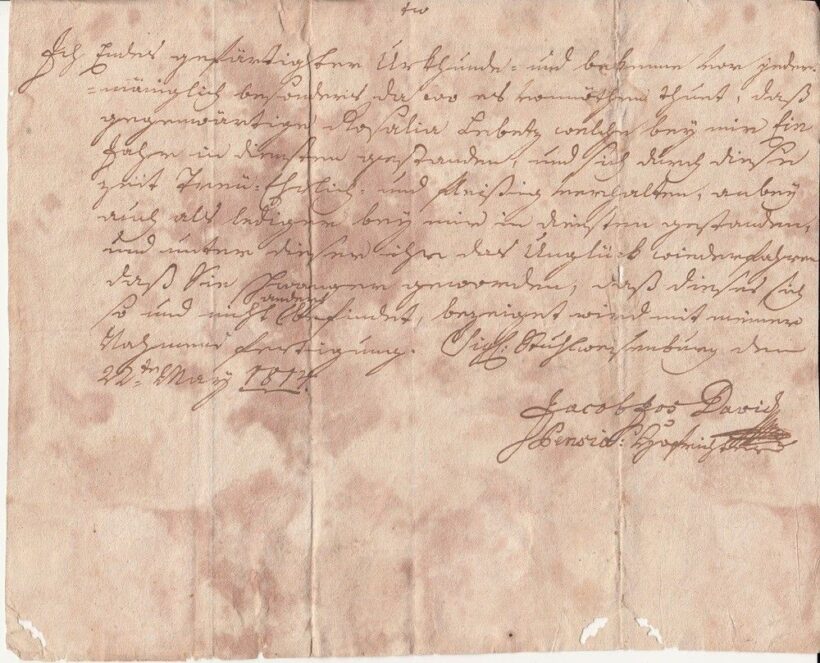 Ich Endes gefärtigter Urkhunde = und bekenne vor jeder-
=mäniglich besonders da wo es vonnöthen thuet, daß
gegenwärtige Rosalia welche bey mir Ein
Jahr in diensten gestanden, und sich durch diese
zeit Treü = Ehrlich = und fleißig verhalten, anbey
auch als lediger bey mir in diensten gestanden,
und unter dieser ihr das Unglück wiederfahren
daß Sie schwanger geworden, daß dieses sich
so und nicht anders befindet, bezeiget wird mit meiner
Nahmens fertigung. Sigl: Stuhlweisenburg den
22ten May 1814.
Jacob David
Pensio: